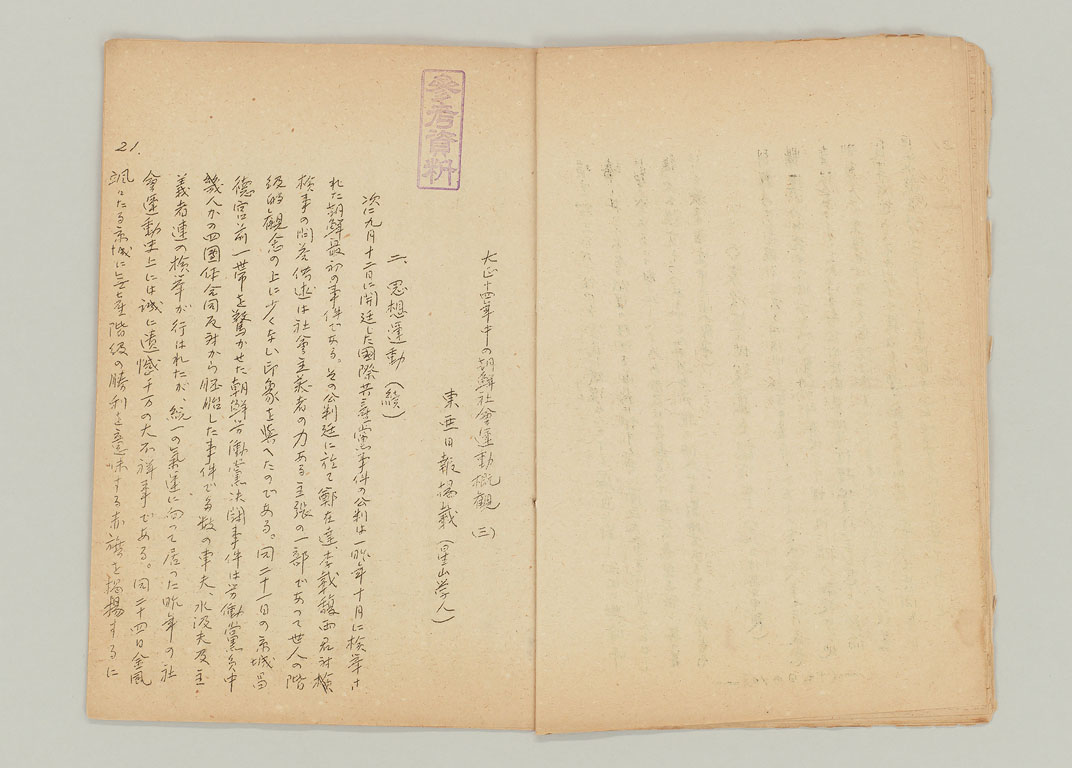 参考資料
大正十四年中の朝鮮社會運動概觀(三)
東亜日報掲載(星山学人)
二、思想運動(續)
次に九月十二日に開廷した國際共産黨事件の公判は一昨年十月に検挙さ
れた朝鮮最初の事件である。その公判廷に於て鄭在達、李載馥両君対検
検事の問答供述は社會主義者の力ある主張の一部であって世人の階
級的観念の上に少くない印象を與へたのである。同二十一日の京城昌
德宮前一帯を驚かせた朝鮮労働黨決闘事件は労働黨員中
幾人かの四團体合同反対から胚胎した事件で多数の車夫、水汲夫及主
義者連の検挙が行はれたが、統一の氣運に向って居った昨年の社
會運動史上には誠に遺憾千万の大不祥事である。同二十四日金風
颯々たる京城に無産階級の勝利を意味する赤旗を掲揚するに
21.